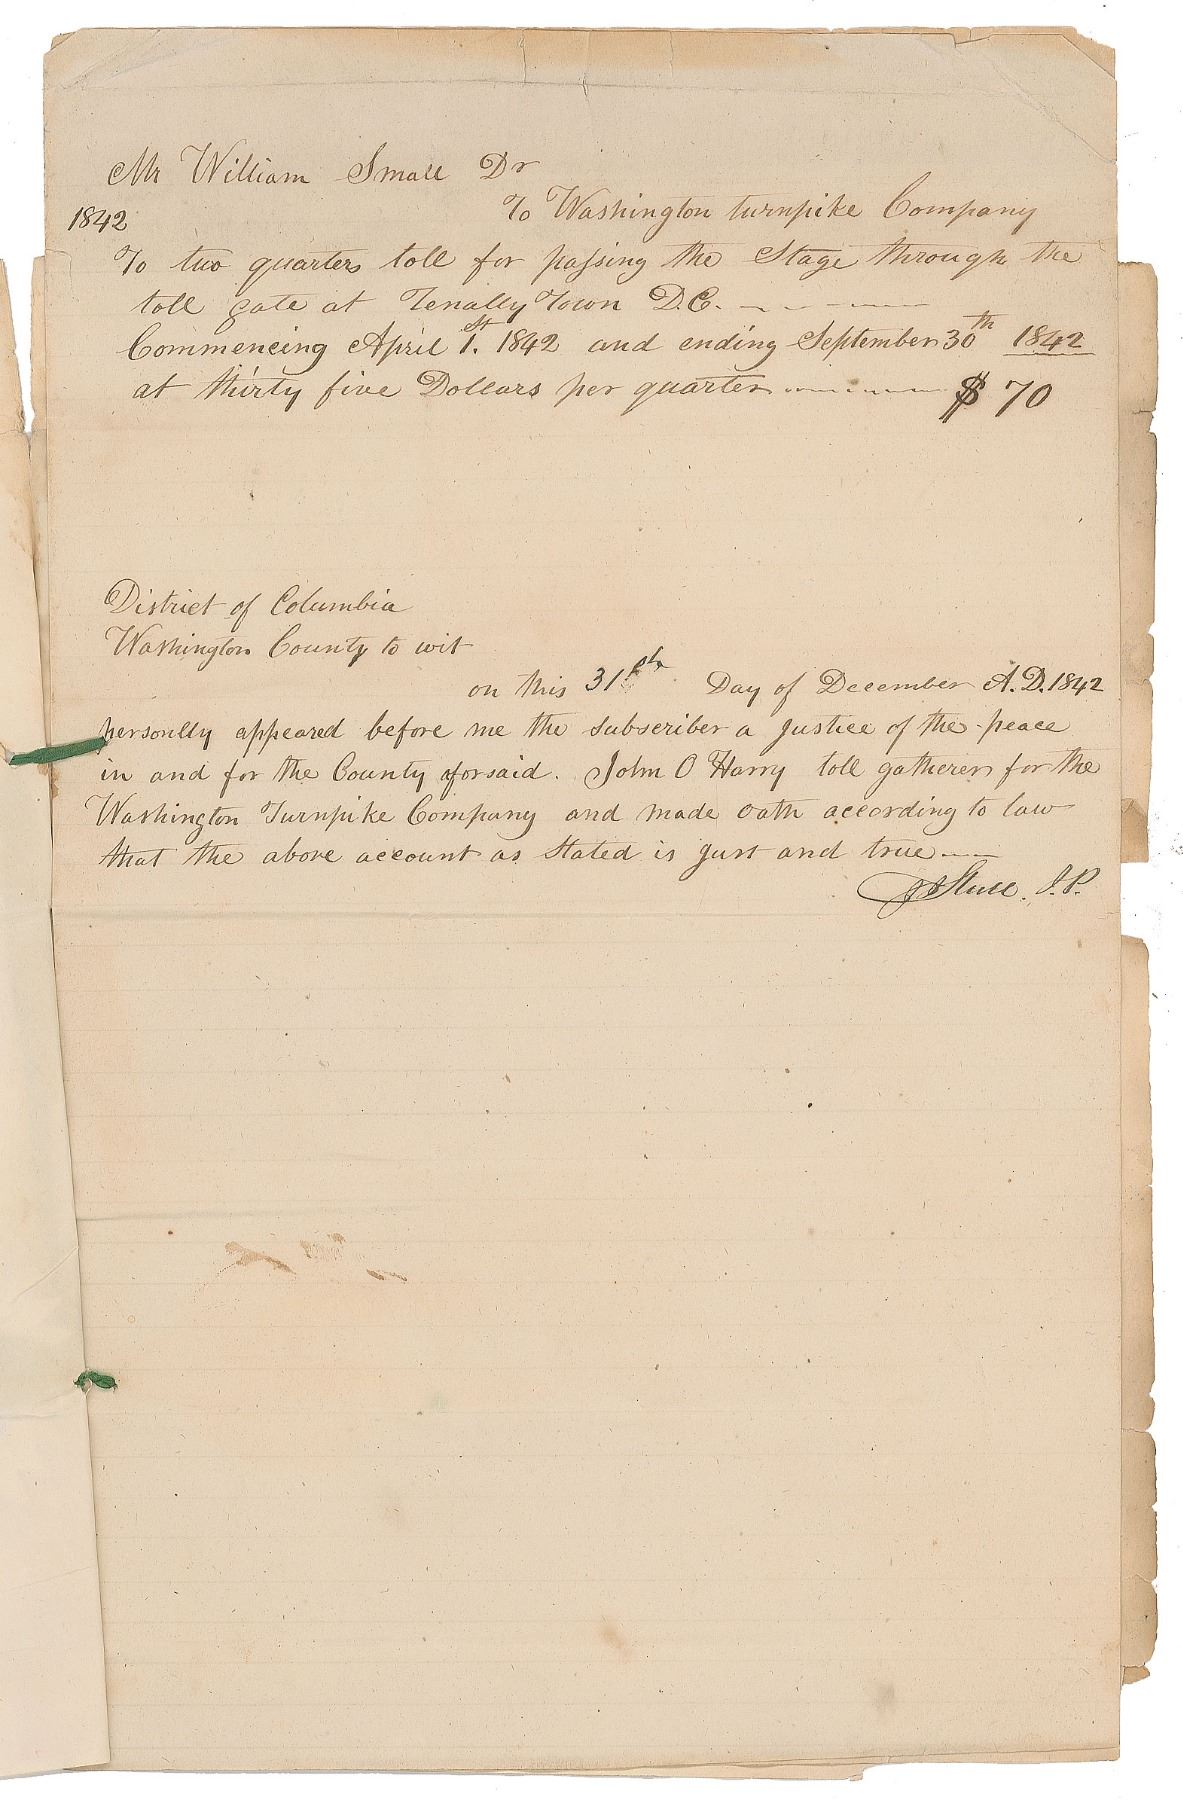 Mr William Small Dr
1842 To Washington turnpike Company
To two quarters toll for passing the Stage through the
toll gate at Tenally Town D.C. - - - -
Commencing April 1.st 1842 and ending September 30th 1842
at thirty five Dollars per quarter - - - - - $ 70
District of Columbia
Washington County to wit
on this 31st Day of December A.D. 1842
personlly appeared before me the subscriber a Justice of the peace
in and for the County aforsaid. John O Harry toll gatherer for the
Washington Turnpike Company and made oath according to law
that the above account as stated is just and true - -
J. P.